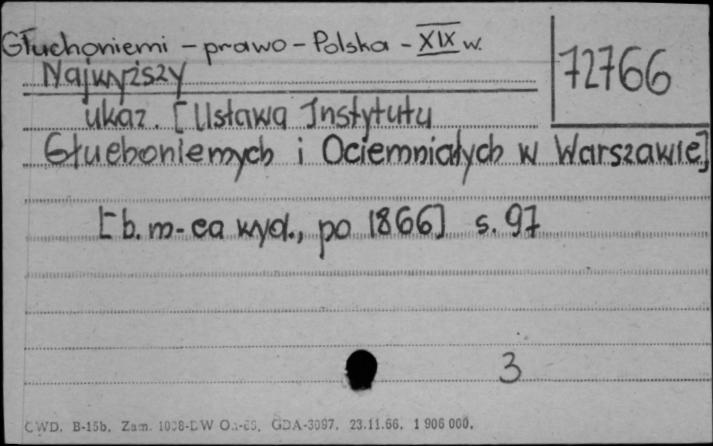 Głuchoniemi - prawo - Polska - XIX w.
72766
Najwyższy
ukaz. [Ustawa Instytutu
Głuchoniemych i Ociemniałych w Warszawie]
[b. m-ca wyd., po 1866] s. 97
3
CWD. B-15b. Zam. GDA-3097. 23.11.66. 1 906 000.